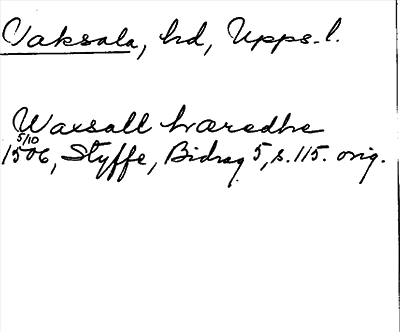 Vaksala, hd, Upps.l.
Waxsall hæredhe
5/10
1506, Styffe, Bidrag 5, s. 115. orig.